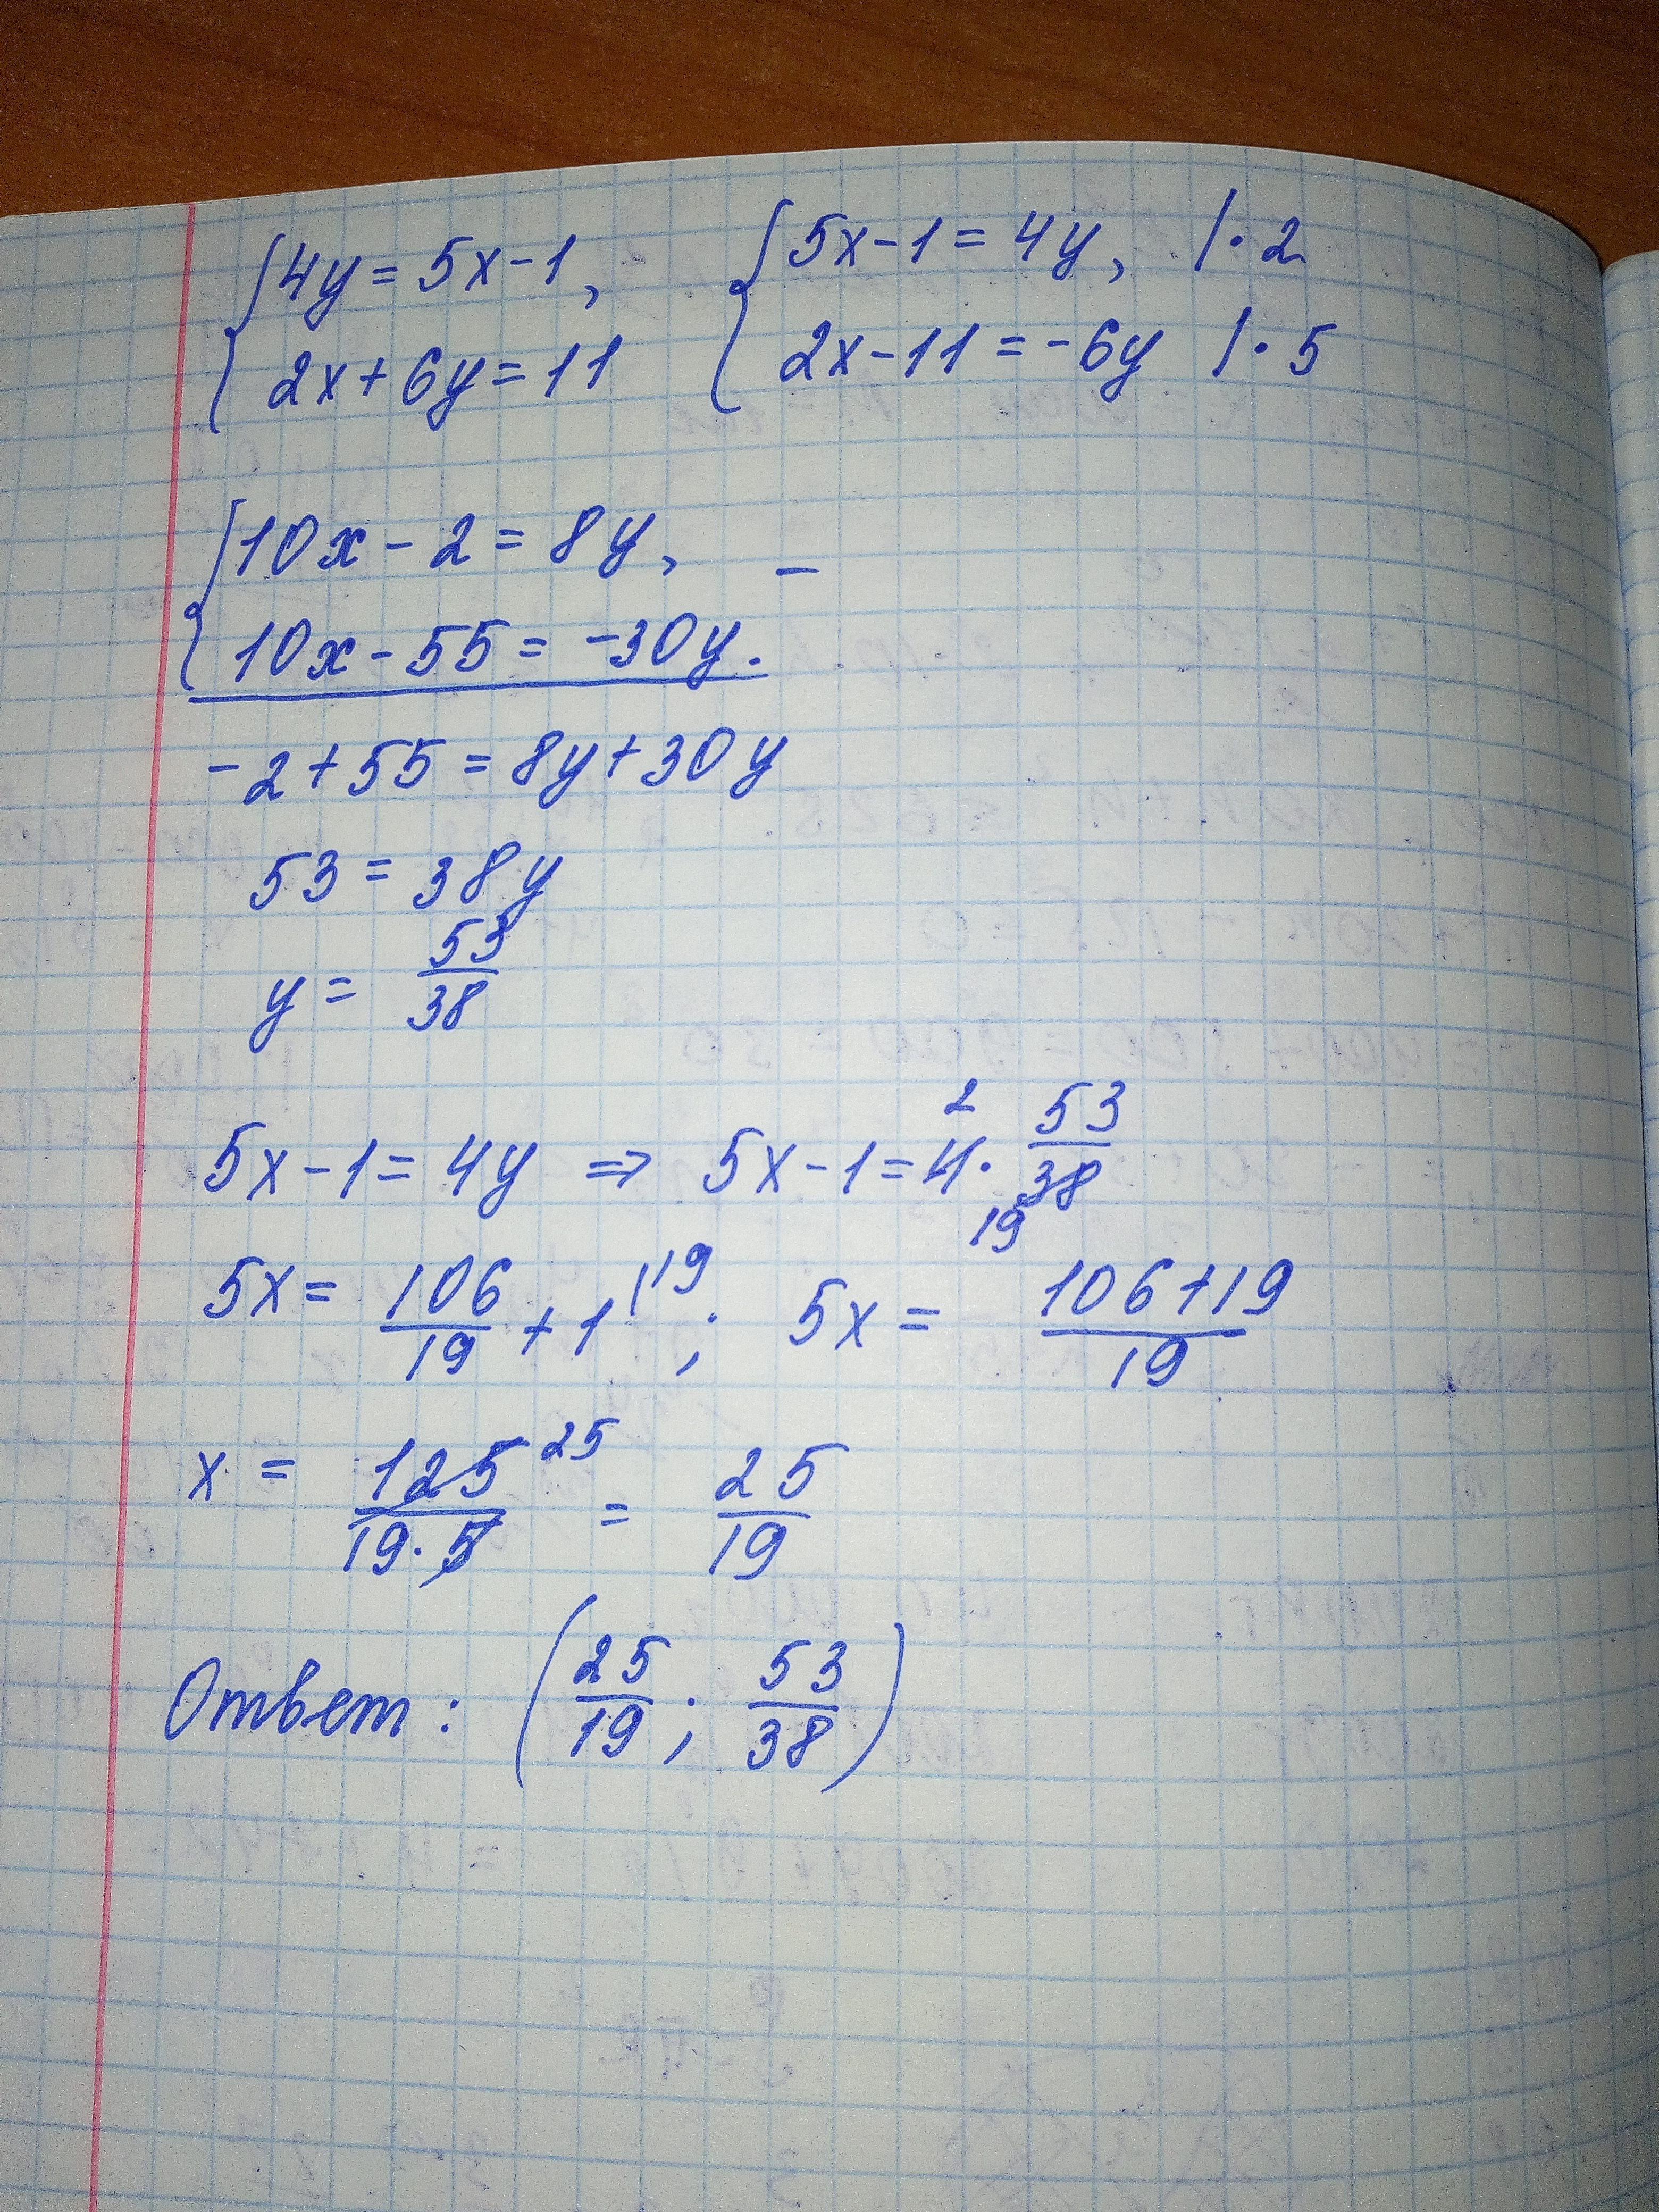 {4y = 5x - 1, {5x - 1 = 4y, | · 2
2x + 6y = 11 2x - 11 = -6y | · 5
{10x - 2 = 8y, -
10x - 55 = -30y.
-2 + 55 = 8y + 30y
53 = 38y
y = 53/38
5x - 1 = 4y ⇒ 5x - 1 = 4² · 53/38 19
5x = 106/19 + 1 |19 ; 5x = 106+19/19
x = 125/19·5 25 = 25/19
Ответ: (25/19 ; 53/38)